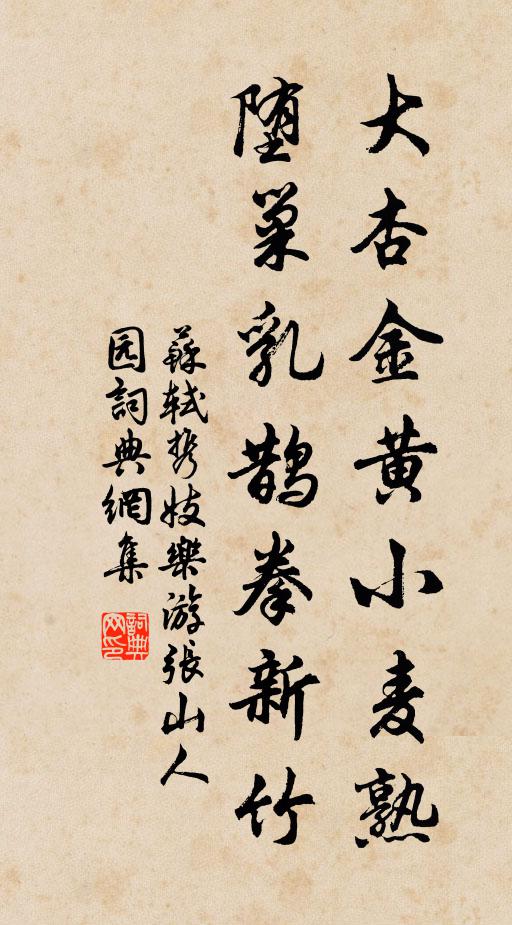 大杏金黄小麦熟
堕巢乳鹊拳新竹
蘇軾携妓樂游張山人
园詞典網集
詞典网印